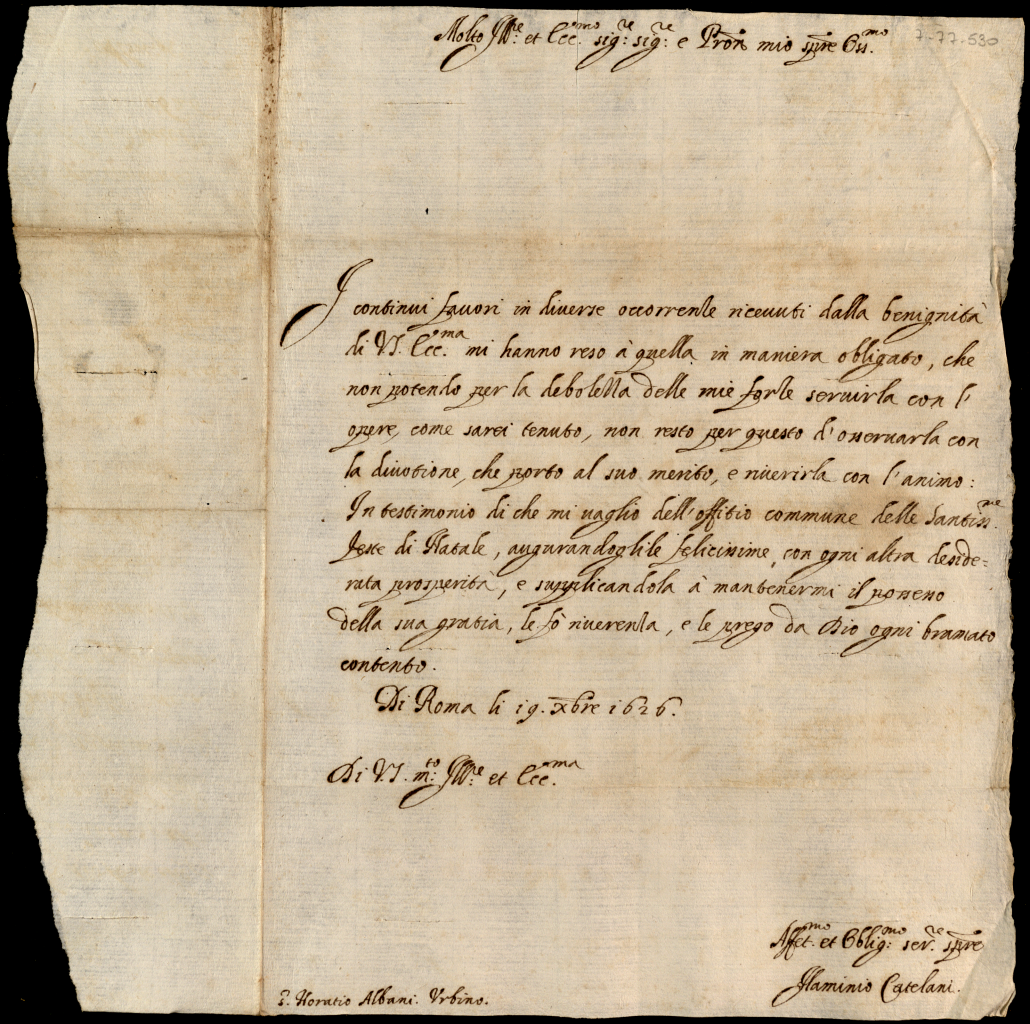 Molto Ill.re et Ecc.mo sig.re sig.re e Pron mio spre Oss.mo
7-77-530
I continui favori in diverse occorrenze ricevuti dalla benignità
di V.S. Ecc.ma mi hanno reso à quella in maniera obligato, che
non potendo per la debolezza delle mie forze servirla con l'
opere, come sarei tenuto, non resto per questo d'osservarla con
la divotione, che porto al suo merito, e riverirla con l'animo:
In testimonio di che mi vaglio dell'offitio commune delle Santiss.me
feste di Natale, augurandoglile felicissime, con ogni altra deside=
rata prosperità, e supplicandola à mantenermi il possesso
della sua gratia, le fò riverenza, e le prego da Dio ogni bramato
contento.
Di Roma li 19. xbre 1626.
Di V.S. m.to Ill.re et Ecc.ma
Affet.mo et Oblig.mo ser.re spre
Flaminio Catelani.
S. Horatio Albani. Urbino.